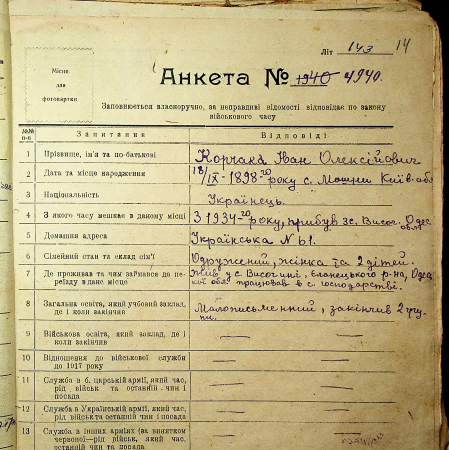 Літ 143 14
Місце
для
фотокартки
Анкета № 1940 4940.
Заповнюється власноручно, за неправдиві відомості відповідає по закону
військового часу
№№ п-п Запитання Відповіді
1 Прізвище, ім'я та по-батькові Корчака Іван Олексійович
2 Дата та місце народження 18/IX-1898-го року с. Мошни Київ-обл
3 Національність Українець.
4 З якого часу мешкає в даному місці З 1934-го року, прибув з с. Висог. Одес
обл.
5 Домашня адреса Українська № 61.
6 Сімейний стан та склад сім'ї Одружений, жінка та 2 дітей.
7 Де проживав та чим займався до пе-
реїзду в дане місце
Жив у с. Висогині, Єланецького р-на, Оде
кої обл працював в с. господарстві.
8 Загальна освіта, який учбовий заклад,
де і коли закінчив
Малописьменний, закінчив 2 гру-
пи.
9 Військова освіта, який заклад, де і
коли закінчив
10 Відношення до військової служби
до 1917 року
11 Служба в б. царській армії, який час,
рід військ та останній чин і
посада
12 Служба в Українській армії, який час,
рід військ та останній чин і посада
13 Служба в інших арміях (за винятком
червоної—рід військ, який час,
останній чин та посада